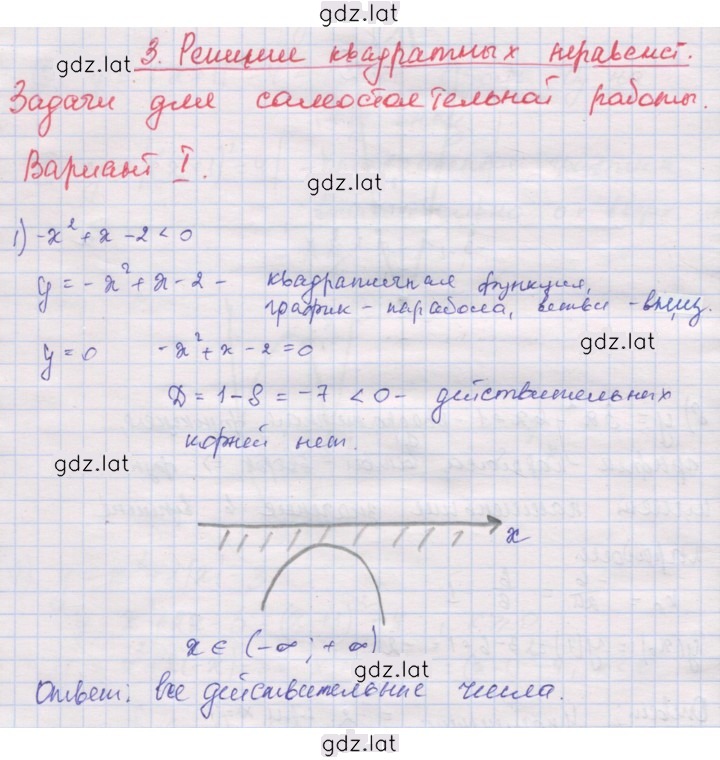 gdz.lat
3. Решение квадратных неравенст.
gdz.lat
Задачи для самостоятельной работы.
Вариант I.
gdz.lat
1) -x² + x - 2 < 0
y = - x² + x - 2 - квадратичная функция,
график - парабола, ветви - вниз.
y = 0 -x² + x - 2 = 0
gdz.lat
D = 1 - 8 = -7 < 0 - действительных
корней нет.
gdz.lat
x
x ∈ (-∞; +∞)
gdz.lat
Ответ: все действительные числа.
gdz.lat